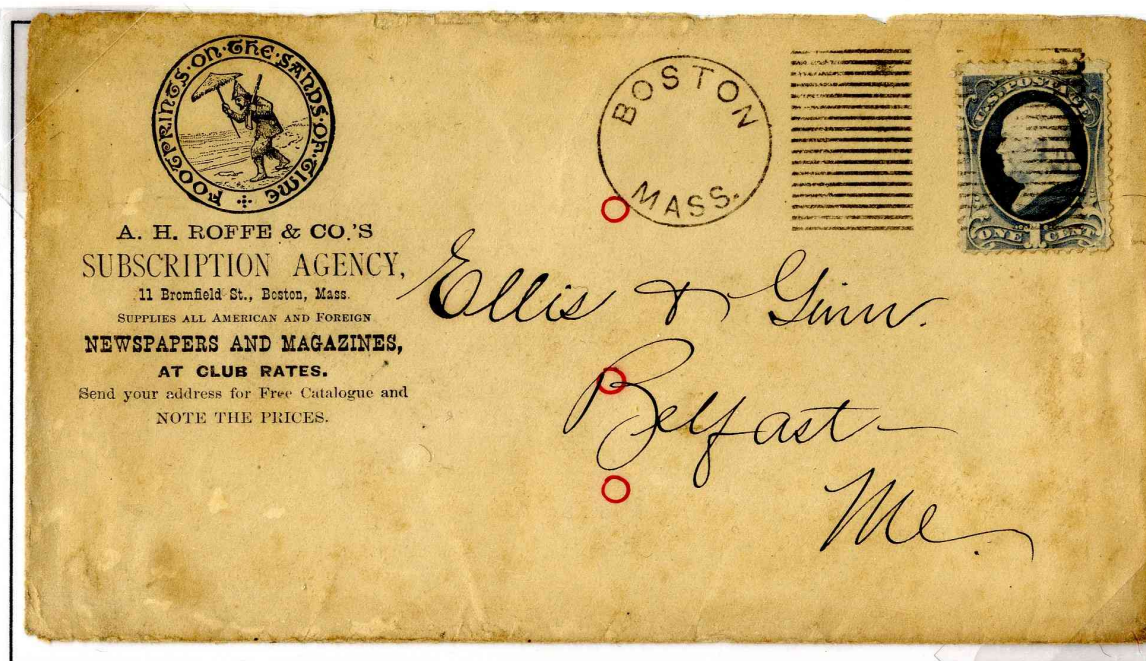 FOOTPRINTS·ON·THE·SANDS·OF·TIME
A. H. ROFFE & CO.'S
SUBSCRIPTION AGENCY,
11 Bromfield St., Boston, Mass.
SUPPLIES ALL AMERICAN AND FOREIGN
NEWSPAPERS AND MAGAZINES,
AT CLUB RATES.
Send your address for Free Catalogue and
NOTE THE PRICES.
BOSTON
MASS.
U.S. POSTAGE
ONE 1 CENT
Ellis & Ginn.
Belfast
Me.